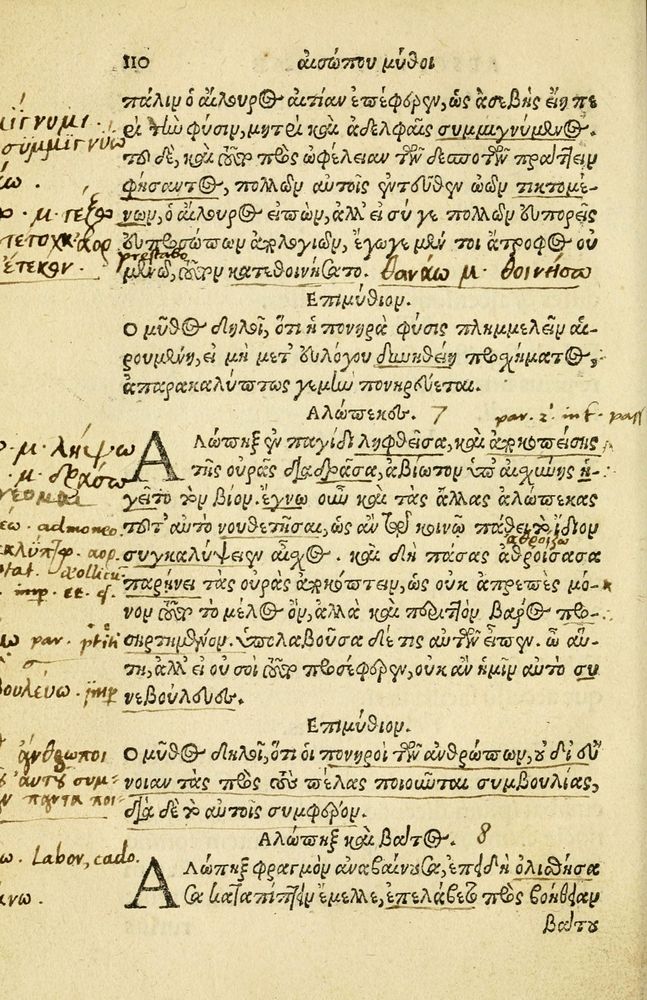 110 αἰσώπου μῦθοι
πάλιν ὁ αἴλουρος αἰτίαν ἐπέφερεν, ὡς ἀσεβὴς εἴη πε
ρὶ τὴν φύσιν, μητρὶ καὶ ἀδελφαῖς συμμιγνύμενος.
τοῦ δὲ, καὶ τοῦτο πρὸς ὠφέλειαν τῶν δεσποτῶν πράττειν
φήσαντος, πολλῶν αὐτοῖς ἐντεῦθεν ὠῶν τικτομέ-
νων, ὁ αἴλουρος εἰπὼν, ἀλλ' εἰ σύ γε πολλῶν εὐπορεῖς
εὐπροσώπων ἀπολογιῶν, ἔγωγε μέν τοι ἄτροφος οὐ
μενῶ, τοῦτον κατεθοινήσατο. θανάω μ. θοινήσω
Επιμύθιον.
Ο μῦθος δηλοῖ, ὅτι ἡ πονηρὰ φύσις πλημμελεῖν αἱ-
ρουμένη, εἰ μὴ μετ' εὐλόγου δυνηθείη προσχήματος,
ἀπαρακαλύπτως γε μὴν πονηρεύεται.
Αλώπεκος. 7 par. 2. inf. pass
ΑΛώπηξ ἐν παγίδι ληφθεῖσα, καὶ ἀποκοπείσης
τῆς οὐρᾶς διαδρᾶσα, ἀβίωτον ὑπ' αἰσχύνης ἡ-
γεῖτο τὸν βίον. ἔγνω οὖν καὶ τὰς ἄλλας ἀλώπεκας
τοῦτ' αὐτὸ νουθετῆσαι, ὡς ἂν τῷ κοινῷ πάθει τὸ ἴδιον
συγκαλύψειεν αἶσχος. καὶ δὴ πάσας ἀθροίσασα
παρῄνει τὰς οὐρὰς ἀποκόπτειν, ὡς οὐκ ἀπρεπὲς μό-
νον τοῦτο τὸ μέλος ὂν, ἀλλὰ καὶ περιττὸν βάρος προ-
σηρτημένον. ὑπολαβοῦσα δέ τις αὐτῶν εἶπεν. ὦ αὕ-
τη, ἀλλ' εἰ οὐ σοὶ τοῦτο προσέφερεν, οὐκ ἂν ἡμῖν αὐτὸ συ
νεβούλευες.
Επιμύθιον.
Ο μῦθος δηλοῖ, ὅτι οἱ πονηροὶ τῶν ἀνθρώπων, οὐ δι' εὔ
νοιαν τὰς πρὸς τοὺς πέλας ποιοῦνται συμβουλίας,
διὰ δὲ τὸ αὐτοῖς συμφέρον.
Αλώπηξ καὶ Βάτος. 8
ΑΛώπηξ φραγμὸν ἀναβαίνουσα, ἐπειδὴ ὀλισθήσα
σα καταπίπτειν ἔμελλε, ἐπελάβετο πρὸς βοήθειαν
βάτου
συμμίγνύω
μ. τέξω
ἔτεκον.
praestabo
μ. λήψω
μ. δράσω
admoneo
ἀθροίζω
imp. et. cf.
par. ptiti
βουλεύω. imp
ἄνθρωποι
αὐτοῦ συμ-
πάντα ποι-
Labor, cado.